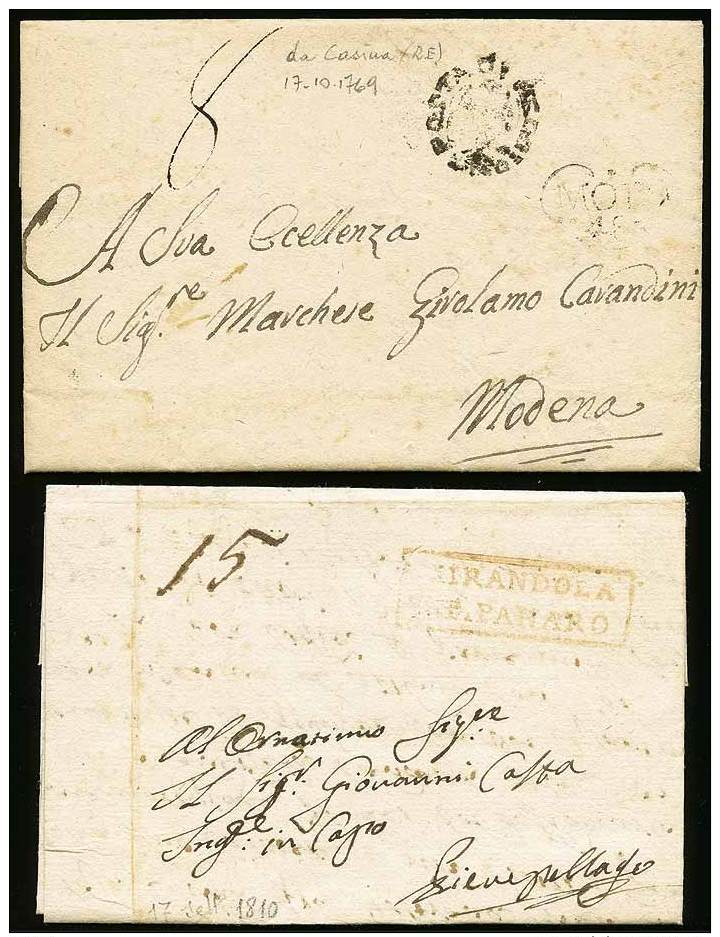 da Casina (RE)
17.10.1769
8
POSTA DI
MOD
A Sva Eccellenza
Il Sig.re Marchese Girolamo Cavandini
Modena
15
MIRANDOLA
P. PANARO
Al Ornatissimo Sig.re
Il Sig.r Giovanni Costa
Ing.e in Capo
Pievepellago
17 Sett. 1810